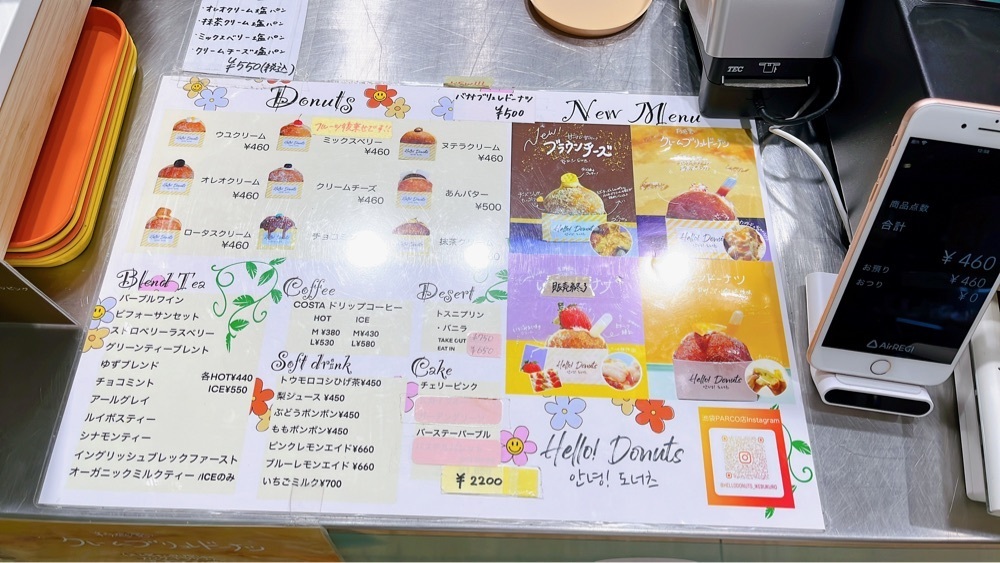 ・オレオクリーム塩パン
・抹茶クリーム塩パン
・ミックスベリー塩パン
・クリームチーズ塩パン
¥550(税込)
Donuts
ウユクリーム
¥460
ミックスベリー
¥460
ヌテラクリーム
¥460
オレオクリーム
¥460
クリームチーズ
¥460
あんバター
¥500
ロータスクリーム
¥460
チョコ
抹茶ク
¥500
New Menu
New!
ブラウンチーズ
Hello! Donuts
Hello! Donuts
販売終了
Hello! Donuts
Hello! Donuts
Blend Tea
パープルワイン
ビフォーサンセット
ストロベリーラスベリー
グリーンティーブレント
ゆずブレンド
チョコミント
アールグレイ
ルイボスティー
シナモンティー
イングリッシュブレックファースト
オーガニックミルクティー /ICEのみ
各HOT¥440
ICE¥550
Coffee
COSTA ドリップコーヒー
HOT ICE
M ¥380 M¥430
L¥530 L¥580
Soft drink
トウモロコシひげ茶¥450
梨ジュース ¥450
ぶどうポンポン¥450
ももポンポン¥450
ピンクレモンエイド¥660
ブルーレモンエイド ¥660
いちごミルク¥700
Desert
トスニプリン
・バニラ
TAKE OUT
EAT IN
Cake
チェリーピンク
バーステーパープル
¥2200
Hello! Donuts
안녕! 도너츠
池袋PARCO店Instagram
@HELLODONUTS_IKEBUKURO
TEC
商品点数
合計
¥460
お預り
¥460
おつり
¥0
AirREGI